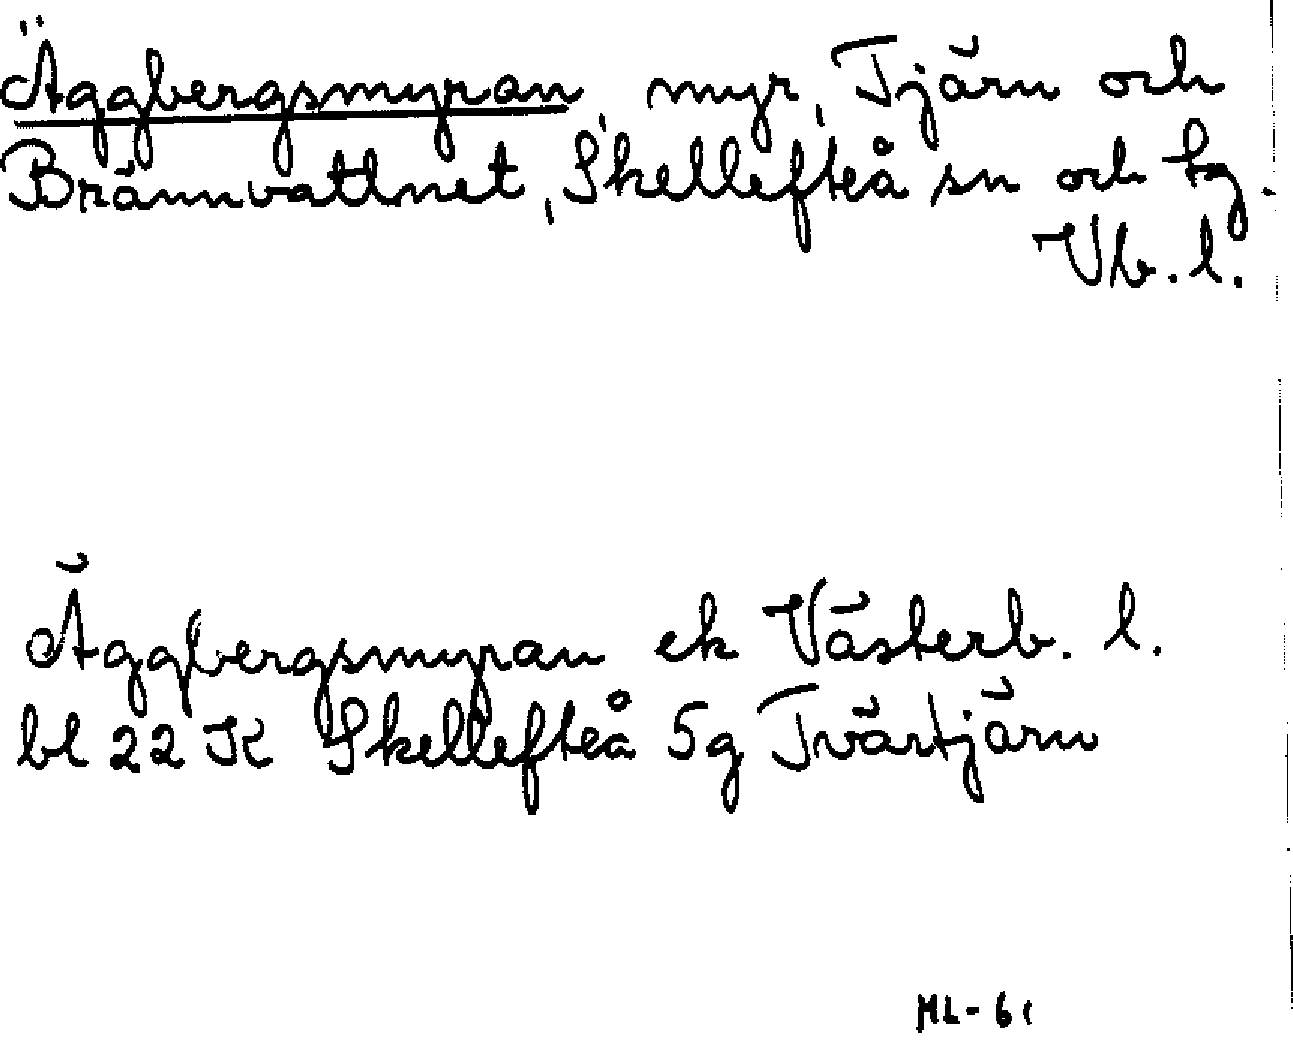 Äggbergsmyran, myr, Tjärn och
Brännvattnet, Skellefteå sn och tg.
Vb. l.
Äggbergsmyran ek Västerb. l.
bl 22 K Skellefteå 5g Tvärtjärn
ML-61